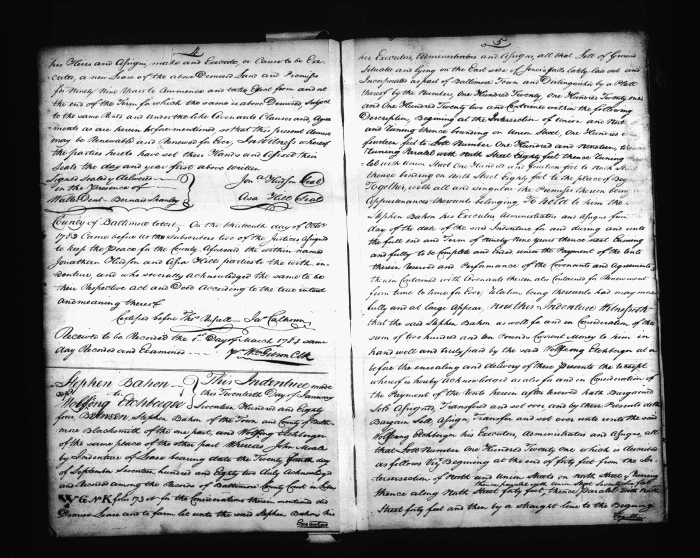 4
his Heirs and Assigns, make and Execute, or Cause to be Exe-
cuted, a new Lease of the above Demised Land and Premises
for Ninety Nine Years to Commence and take Effect from and at
the end of the Term for which the same is above Demised, Subject
to the same Rents and Under the like Covenants Clauses and Agree-
ments as are herein before mentioned so that this present demise
may be Renewable and Renewed for Ever, In Witness whereof
the parties hereto have set their Hands and affixed their
Seals the day and year first above written
Signed Sealed & Delivered
in the presence of
Jona. Hudson Seal
Asa Hill Seal
County of Baltimore to wit; On the thirteenth day of Octob.
1783 Came before us the Subscribers two of the Justices Assigned
to keep the Peace for the County aforesaid the within named
Jonathan Hudson and Asa Hill parties to the with in-
denture, and who severally acknowledged the same to be
their Respective Act and Deed According to the true intent
and meaning thereof
Certified before Jas. Calhoun
Received to be Recorded the 1st Day of March 1784 same
day Recorded and Examined
Stephen Bahon
to
Wolfgang Etchberger
This Indenture made
the Twentieth Day of January
Seventeen Hundred and Eighty
four Between Stephen Bahon of the Town and County of Balti-
more Blacksmith of the one part, and Wolfgang Etchberger
of the same place of the other part Whereas John Moale
by Indenture of Lease bearing date the Twenty fourth day
of September Seventeen hundred and Eighty two duly Acknowledged
and Recorded among the Records of Baltimore County Court in Liber
W G No K folio 173 &c for the Considerations therein mentioned did
Demise Lease and to farm let unto the said Stephen Bahon his
Executors
5
his Executors, Administrators and Assigns, all that Lott of Ground
Situate and lying on the East side of Jones's falls lately laid out and
Incorporated as part of Baltimore Town and Distinguished by a Platt
thereof by the Numbers, One Hundred Twenty, One Hundred Twenty one
and One Hundred Twenty two and Contained within the following
Description, Begining at the Intersection of Union and North
and Runing thence bounding on Union Street, One Hundred &
fourteen feet to Lott Number One Hundred and Nineteen, th
Runing Paralel with North Street Eighty feet thence Runing
lel with Union Street One Hundred and fourteen feet to North St
thence binding on North Street Eighty feet to the place of Beg
Together, with all and singular the Premises thereon being
Appurtenances thereunto belonging To Hold to him the
Stephen Bahon his Executors Administrators and Assigns from
day of the date of the said Indenture for and during and unto
the full end and Term of Ninety Nine years thence next Ensuing
and fully to be Compleat and ended under the Payment of the rents
therein Reserved and Performance of the Covenants and Agreements
therein Contained with Covenants therein also Contained for Renewment
from time to time for Ever, Relation being thereunto had may more
fully and at large Appear Now this Indenture Witnesseth
that the said Stephen Bahon as well for and in Consideration of the
sum of two hundred and ten Pounds Current Money to him in
hand well and truly paid by the said Wolfgang Etchberger at or
before the ensealing and delivery of these presents the receipt
whereof is hereby Acknowledged as also for and in Consideration of
the Payment of the rents herein after Reserved hath Bargained
Sold Assigned, Transfered and set over and by these Presents doth
Bargain Sell, Assign, Transfer and set over unto the said
Wolfgang Etchberger his Executors, Administrators and Assigns, all
that Lott Number One Hundred Twenty One which is described
as follows Viz, Begining at the end of forty feet from the In-
tersection of North and Union Streets on North Street & Runing
thence along North Street forty feet, thence Paralel with North
Street forty feet and then by a straight line to the Begining
Together